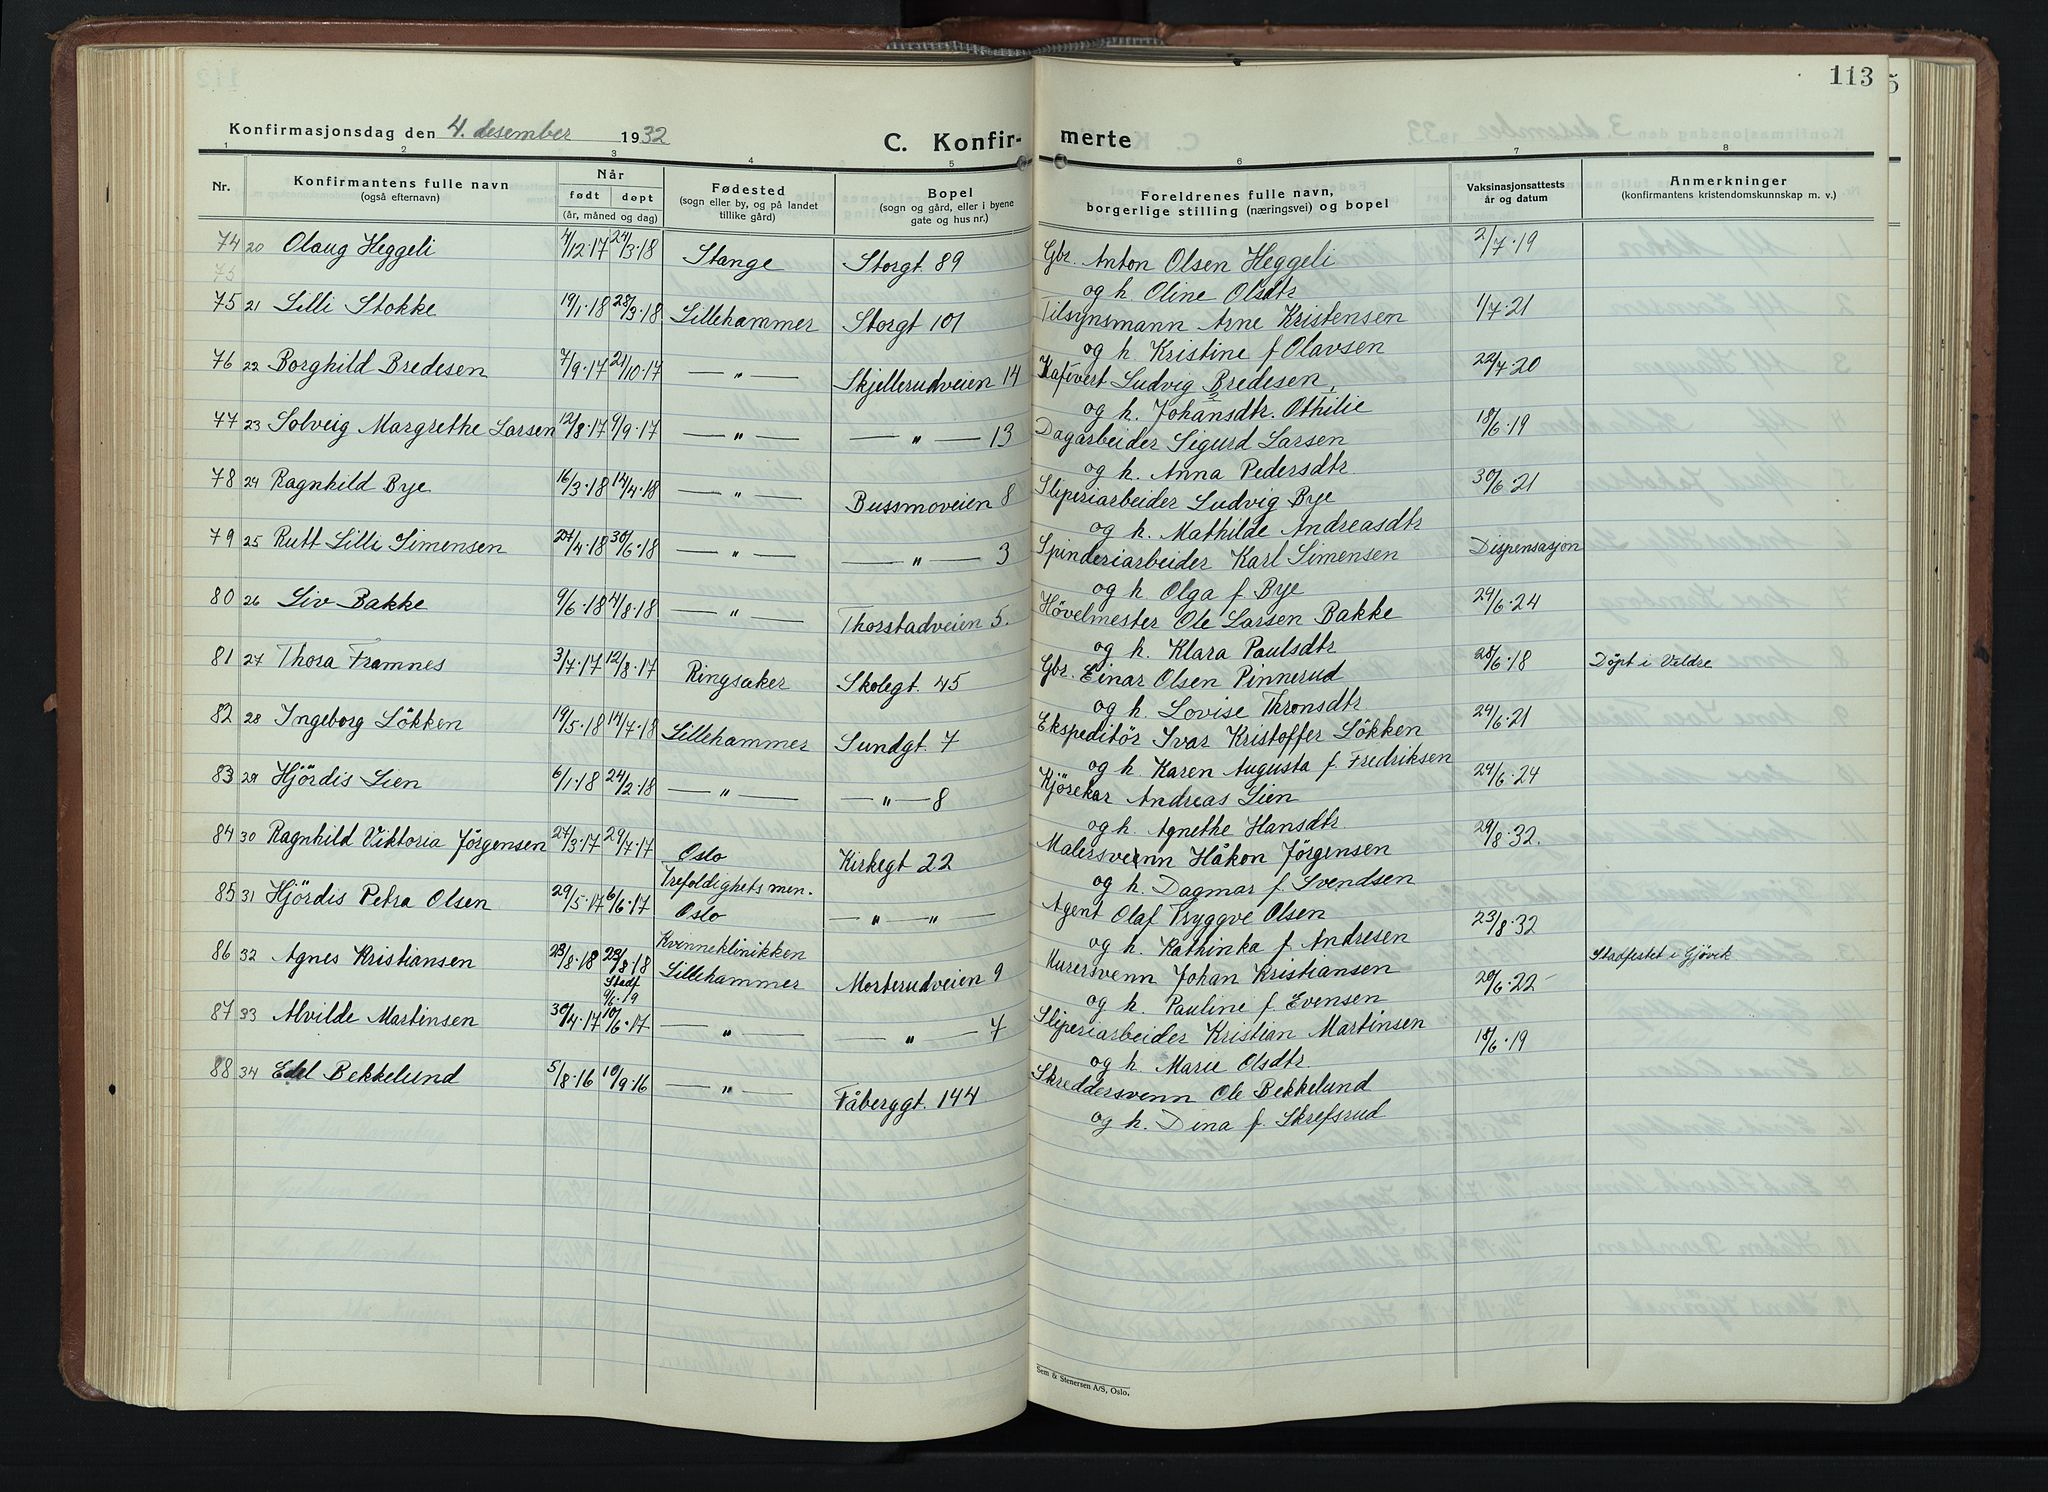 113
Konfirmasjonsdag den 4. desember 1932
C. Konfir-
merte
1 2 3 4 5 6 7 8
Nr.
Konfirmantens fulle navn
(også efternavn)
Når
født døpt
(år, måned og dag)
Fødested
(sogn eller by, og på landet
tillike gård)
Bopel
(sogn og gård, eller i byene
gate og hus nr.)
Foreldrenes fulle navn,
borgerlige stilling (næringsvei) og bopel
Vaksinasjonsattests
år og datum
Anmerkninger
(konfirmantens kristendomskunnskap m. v.)
74 20 Olaug Heggeli 4/12·17 24/3·18 Stange Storgt. 89 Gbr. Anton Olsen Heggeli 2/7·19
75
og h. Oline Olsdtr
75 21 Lilli Stokke 19/1·18 28/3·18 Lillehammer Storgt 101 Tilsynsmann Arne Kristensen 1/7·21
og h. Kristine f Olavsen
76 22 Borghild Bredesen 7/9·17 21/10·17 — " — Skjellerudveien 14 Kafévert Ludvig Bredesen, 22/7·20
og h. Johansdtr. Othilie
77 23 Solveig Margrethe Larsen 12/8·17 9/9·17 — " — — " — 13 Dagarbeider Sigurd Larsen 18/6·19
og h. Anna Pedersdtr
78 24 Ragnhild Bye 16/3·18 14/4·18 — " — Bussmoveien 8 Sliperiarbeider Ludvig Bye 30/6·21
og h. Mathilde Andreasdtr
79 25 Rutt Lilli Simensen 27/4·18 30/6·18 — " — — " — 3 Spinderiarbeider Karl Simensen Dispensasjon
og h. Olga f Bye
80 26 Liv Bakke 9/6·18 4/8·18 — " — Thorstadveien 5. Hövelmester Ole Larsen Bakke 24/6·24
og h. Klara Paulsdtr
81 27 Thora Framnes 3/7·17 12/8·17 Ringsaker Skolegt. 45 Gbr. Einar Olsen Pinnerud 28/6·18 Döpt i Veldre
og h. Lovise Thronsdtr
82 28 Ingeborg Lökken 19/5·18 14/7·18 Lillehammer Sundgt. 7 Ekspeditör Ivar Kristoffer Lökken 24/6·21
og h. Karen Augusta f. Fredriksen
83 29 Hjördis Lien 6/1·18 24/2·18 — " — — " — 8 Kjörekar Andreas Lien 24/6·24
og h. Agnethe Hansdtr.
84 30 Ragnhild Viktoria Jörgensen 27/3·17 29/7·17 Oslo Kirkegt 22 Malersvenn Håkon Jörgensen 29/8·32.
Trefoldighets men. og h. Dagmar f. Svendsen
85 31 Hjördis Petra Olsen 29/5·17 6/6·17 Oslo — " — " — Agent Olaf Tryggve Olsen 23/8·32
Kvinneklinikken og h. Kathinka f. Andresen
86 32 Agnes Kristiansen 23/8·18 23/8·18 Lillehammer Morterudveien 9 Murersvenn Johan Kristiansen 29/6·22- Stadfestet i Gjövik
Stadf
9/6·19
og h. Pauline f. Evensen
87 33 Alvilde Martinsen 30/4·17 10/6·17 — " — — " — 7 Sliperiarbeider Kristian Martinsen 18/6·19
og h. Marie Olsdtr
88 34 Edel Bekkelund 5/8·16 10/9·16 — " — Fåberggt. 144 Skreddersvenn Ole Bekkelund
og h. Dina f. Skrefsrud
Sem & Stenersen A/S, Oslo.